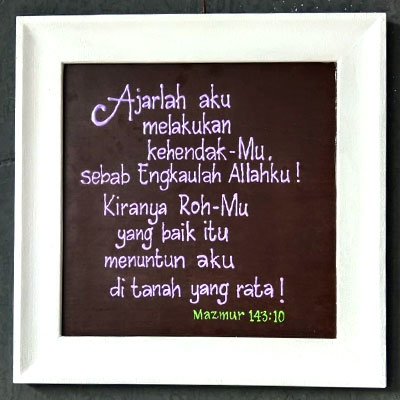 Ajarlah aku
melakukan
kehendak-Mu,
sebab Engkaulah Allahku!
Kiranya Roh-Mu
yang baik itu
menuntun aku
di tanah yang rata!
Mazmur 143:10